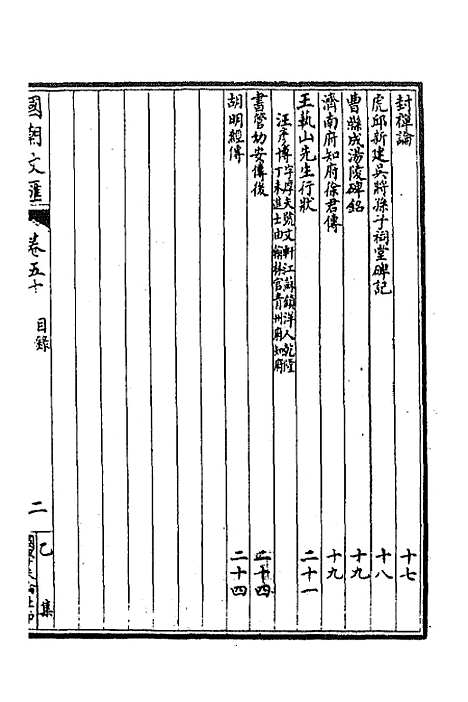 封禪論 十七
虎邱新建吳將孫子祠堂碑記 十八
曹縣成湯陵碑銘 十九
濟南府知府徐君傳 十九
王執山先生行狀 二十一
汪彥博 字厚夫號文軒江蘇鎮洋人乾隆
丁未進士由翰林官青州府知府
書管幼安傳後 二十四
胡明經傳 二十四
國朝文匯 卷五十 目錄 二 乙集